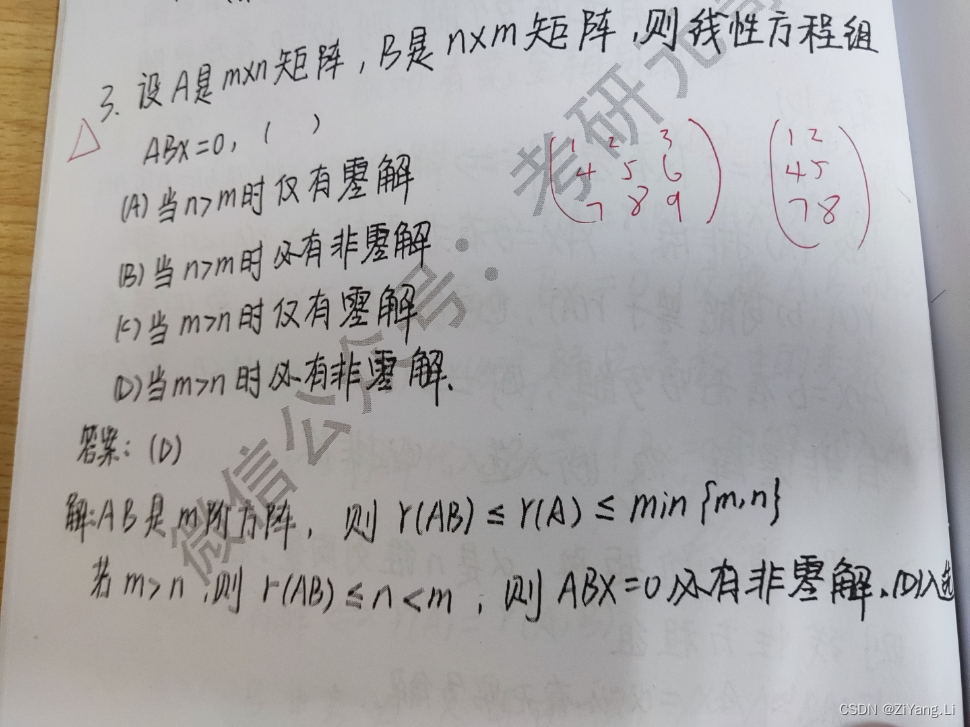 3. 设A是m×n矩阵，B是n×m矩阵，则线性方程组
ABX=0，（ ）
(A)当n>m时仅有零解
(B)当n>m时必有非零解
(C)当m>n时仅有零解
(D)当m>n时必有非零解.
1 2 3
4 5 6
7 8 9
1 2
4 5
7 8
答案：(D)
解：AB是m阶方阵，则 r(AB)≤r(A)≤min{m,n}
若m>n，则r(AB)≤n<m，则ABX=0必有非零解.(D)入选
微信公众号：考研
CSDN @ZiYang.Li